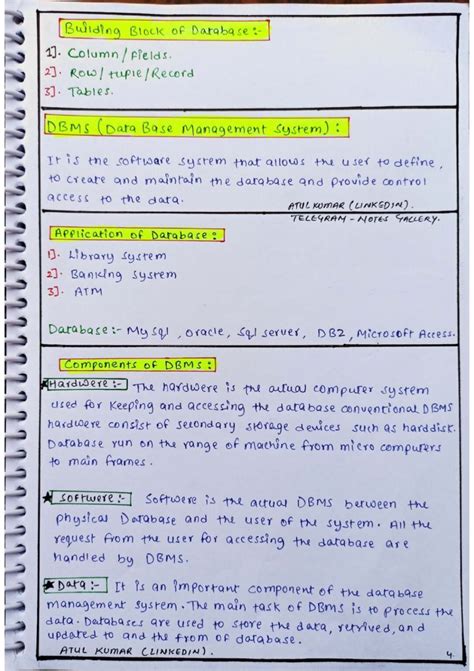 Building Block of Database:-
1]. Column/fields.
2]. Row/tuple/Record
3]. Tables.
DBMS (Data Base Management System):
It is the software system that allows the user to define,
to create and maintain the database and provide control
access to the data.
ATUL KUMAR (LINKEDIN).
TELEGRAM - NOTES GALLERY.
Application of Database:
1]. Library system
2]. Banking system
3]. ATM
Database:- My sql, oracle, sql server, DB2, Microsoft Access.
Components of DBMS:
Hardwere:- The hardwere is the actual computer system
used for keeping and accessing the database conventional DBMS
hardwere consist of secondary storage devices such as harddisk.
Database run on the range of machine from micro computers
to main frames.
Softwere:- Softwere is the actual DBMS between the
physical Database and the user of the system. All the
request from the user for accessing the database are
handled by DBMS.
Data:- It is an important component of the database
management system. The main task of DBMS is to process the
data. Databases are used to store the data, retrived, and
updated to and the from of database.
ATUL KUMAR (LINKEDIN).
4.